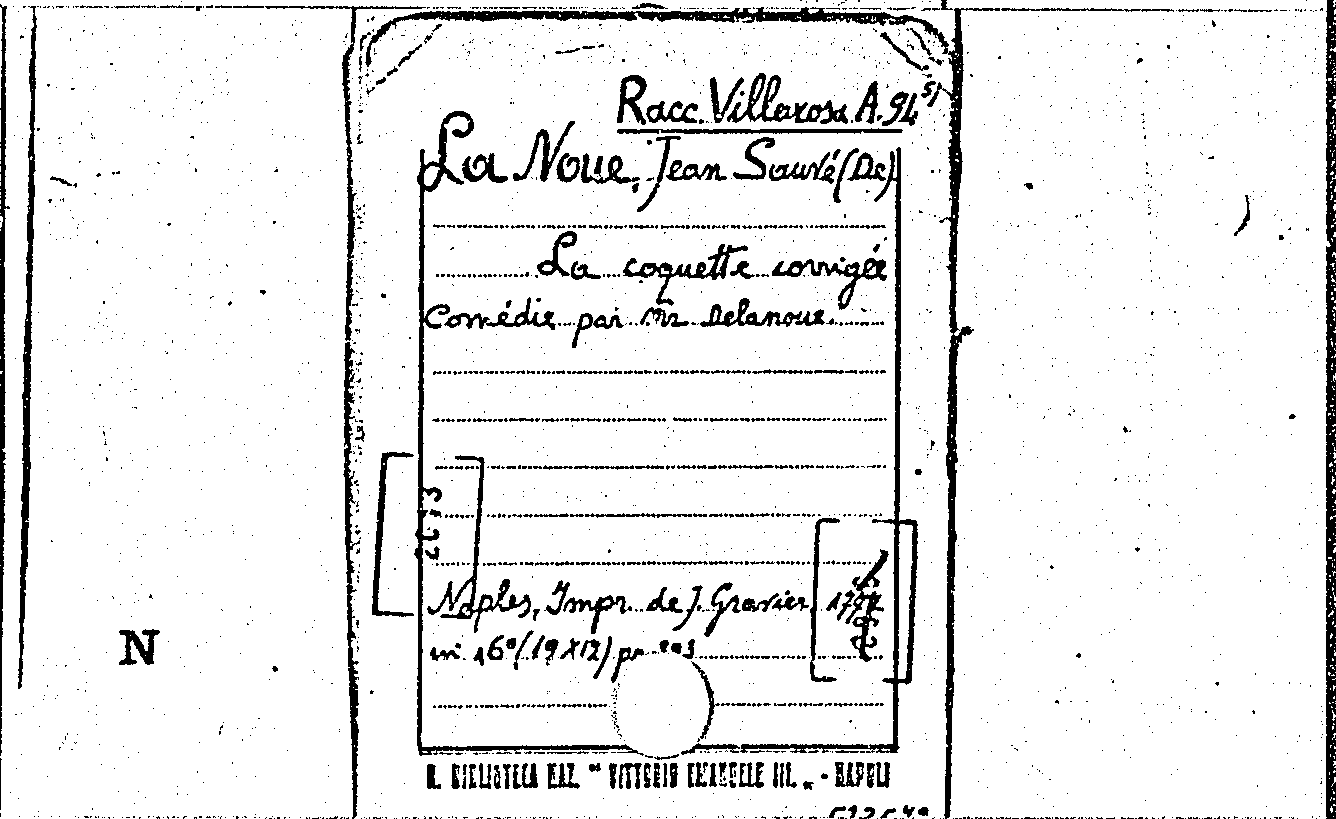 Racc. Villarosa A. 94 51
La Noue, Jean Sauvé (De)
La coquette corrigée
Comédie par Mr Delanoue.
Naples, Impr. de J. Gravier
in 16º (19 X 12)
N
R. BIBLIOTECA NAZ. "VITTORIO EMANUELE III." - NAPOLI